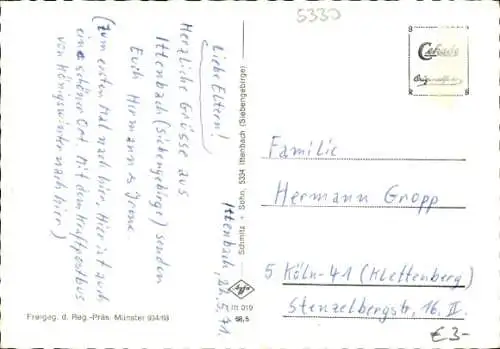 5330
Cekade
Originalfoto
Ittenbach, 27.5.71.
Liebe Eltern!
Herzliche Grüsse aus
Ittenbach (Siebengebirge) senden
Euch Hermann u Irene.
(Zum ersten Mal nach hier. Hier ist auch
eine schöner Ort. Mit dem Kraftpostbus
von Königswinter nach hier)
Schmitz + Sohn, 5334 Ittenbach (Siebengebirge)
Familie
Hermann Gropp
5 Köln-41 (Klettenberg)
Stenzelbergstr. 16. II.
€ 3-
Freigeg. d. Reg.-Präs. Münster 934/68
m 019
68,5